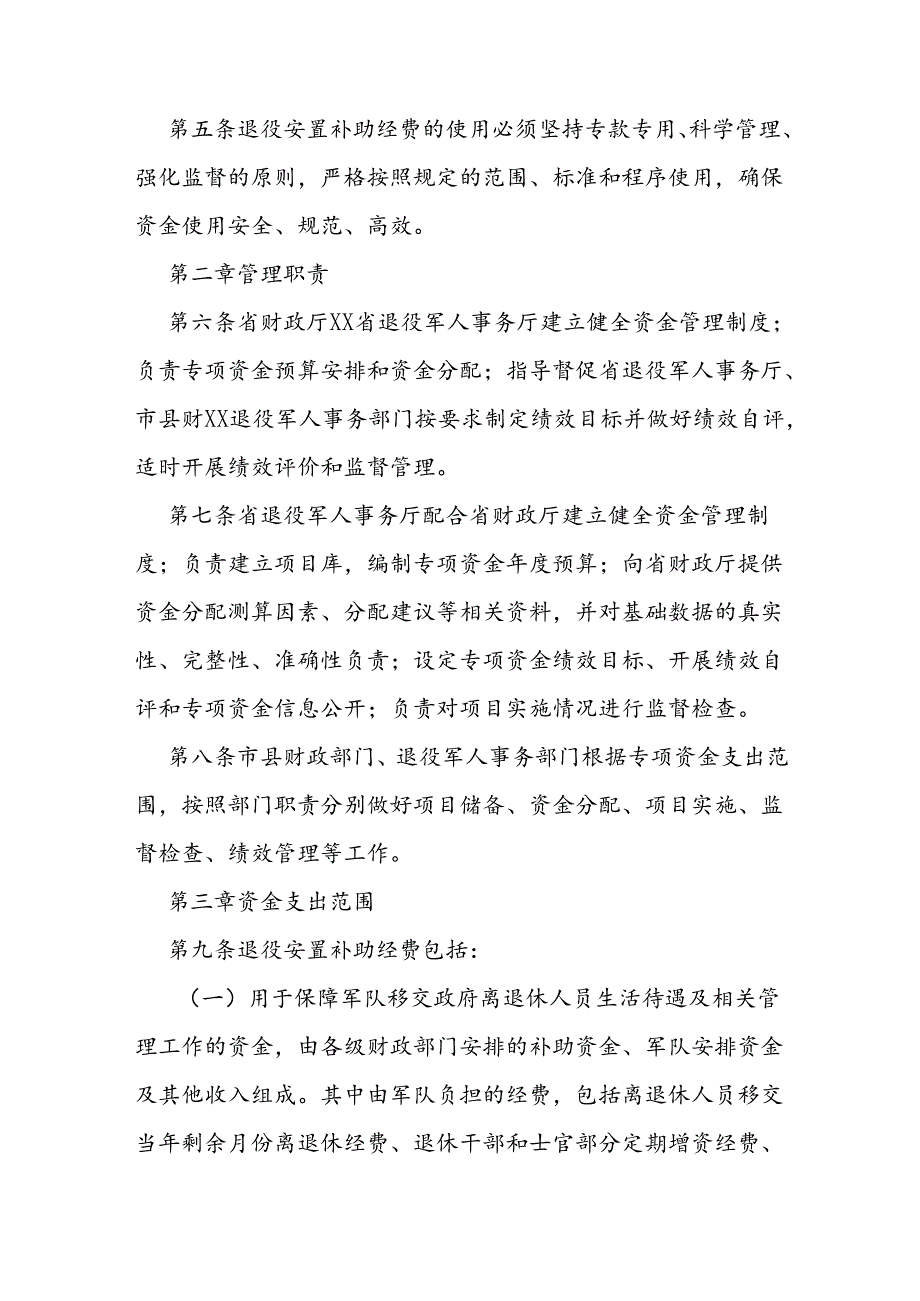 第五条退役安置补助经费的使用必须坚持专款专用、科学管理、
强化监督的原则，严格按照规定的范围、标准和程序使用，确保
资金使用安全、规范、高效。
第二章管理职责
第六条省财政厅XX省退役军人事务厅建立健全资金管理制度；
负责专项资金预算安排和资金分配；指导督促省退役军人事务厅、
市县财XX退役军人事务部门按要求制定绩效目标并做好绩效自评，
适时开展绩效评价和监督管理。
第七条省退役军人事务厅配合省财政厅建立健全资金管理制
度；负责建立项目库，编制专项资金年度预算；向省财政厅提供
资金分配测算因素、分配建议等相关资料，并对基础数据的真实
性、完整性、准确性负责；设定专项资金绩效目标、开展绩效自
评和专项资金信息公开；负责对项目实施情况进行监督检查。
第八条市县财政部门、退役军人事务部门根据专项资金支出范
围，按照部门职责分别做好项目储备、资金分配、项目实施、监
督检查、绩效管理等工作。
第三章资金支出范围
第九条退役安置补助经费包括：
（一）用于保障军队移交政府离退休人员生活待遇及相关管
理工作的资金，由各级财政部门安排的补助资金、军队安排资金
及其他收入组成。其中由军队负担的经费，包括离退休人员移交
当年剩余月份离退休经费、退休干部和士官部分定期增资经费、